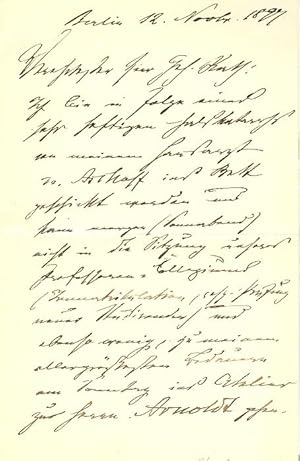 Berlin 12. Novbr. 1897
Verehrter Herr Geh. Rath!
Ich bin in Folge eines
sehr heftigen Halskatarrhs
von meinem Hausarzt
Dr. Aschoff ins Bett
geschickt worden und
kann morgen (Sonnabend)
nicht in die Sitzung unseres
Professoren-Collegiums
(Immatrikulation, resp. Prüfung
neuer Studirender) und
ebenso wenig, zu meinem
allergrößesten Bedauern
am Sonntag ins Atelier
zu Herrn Arnoldt gehen.